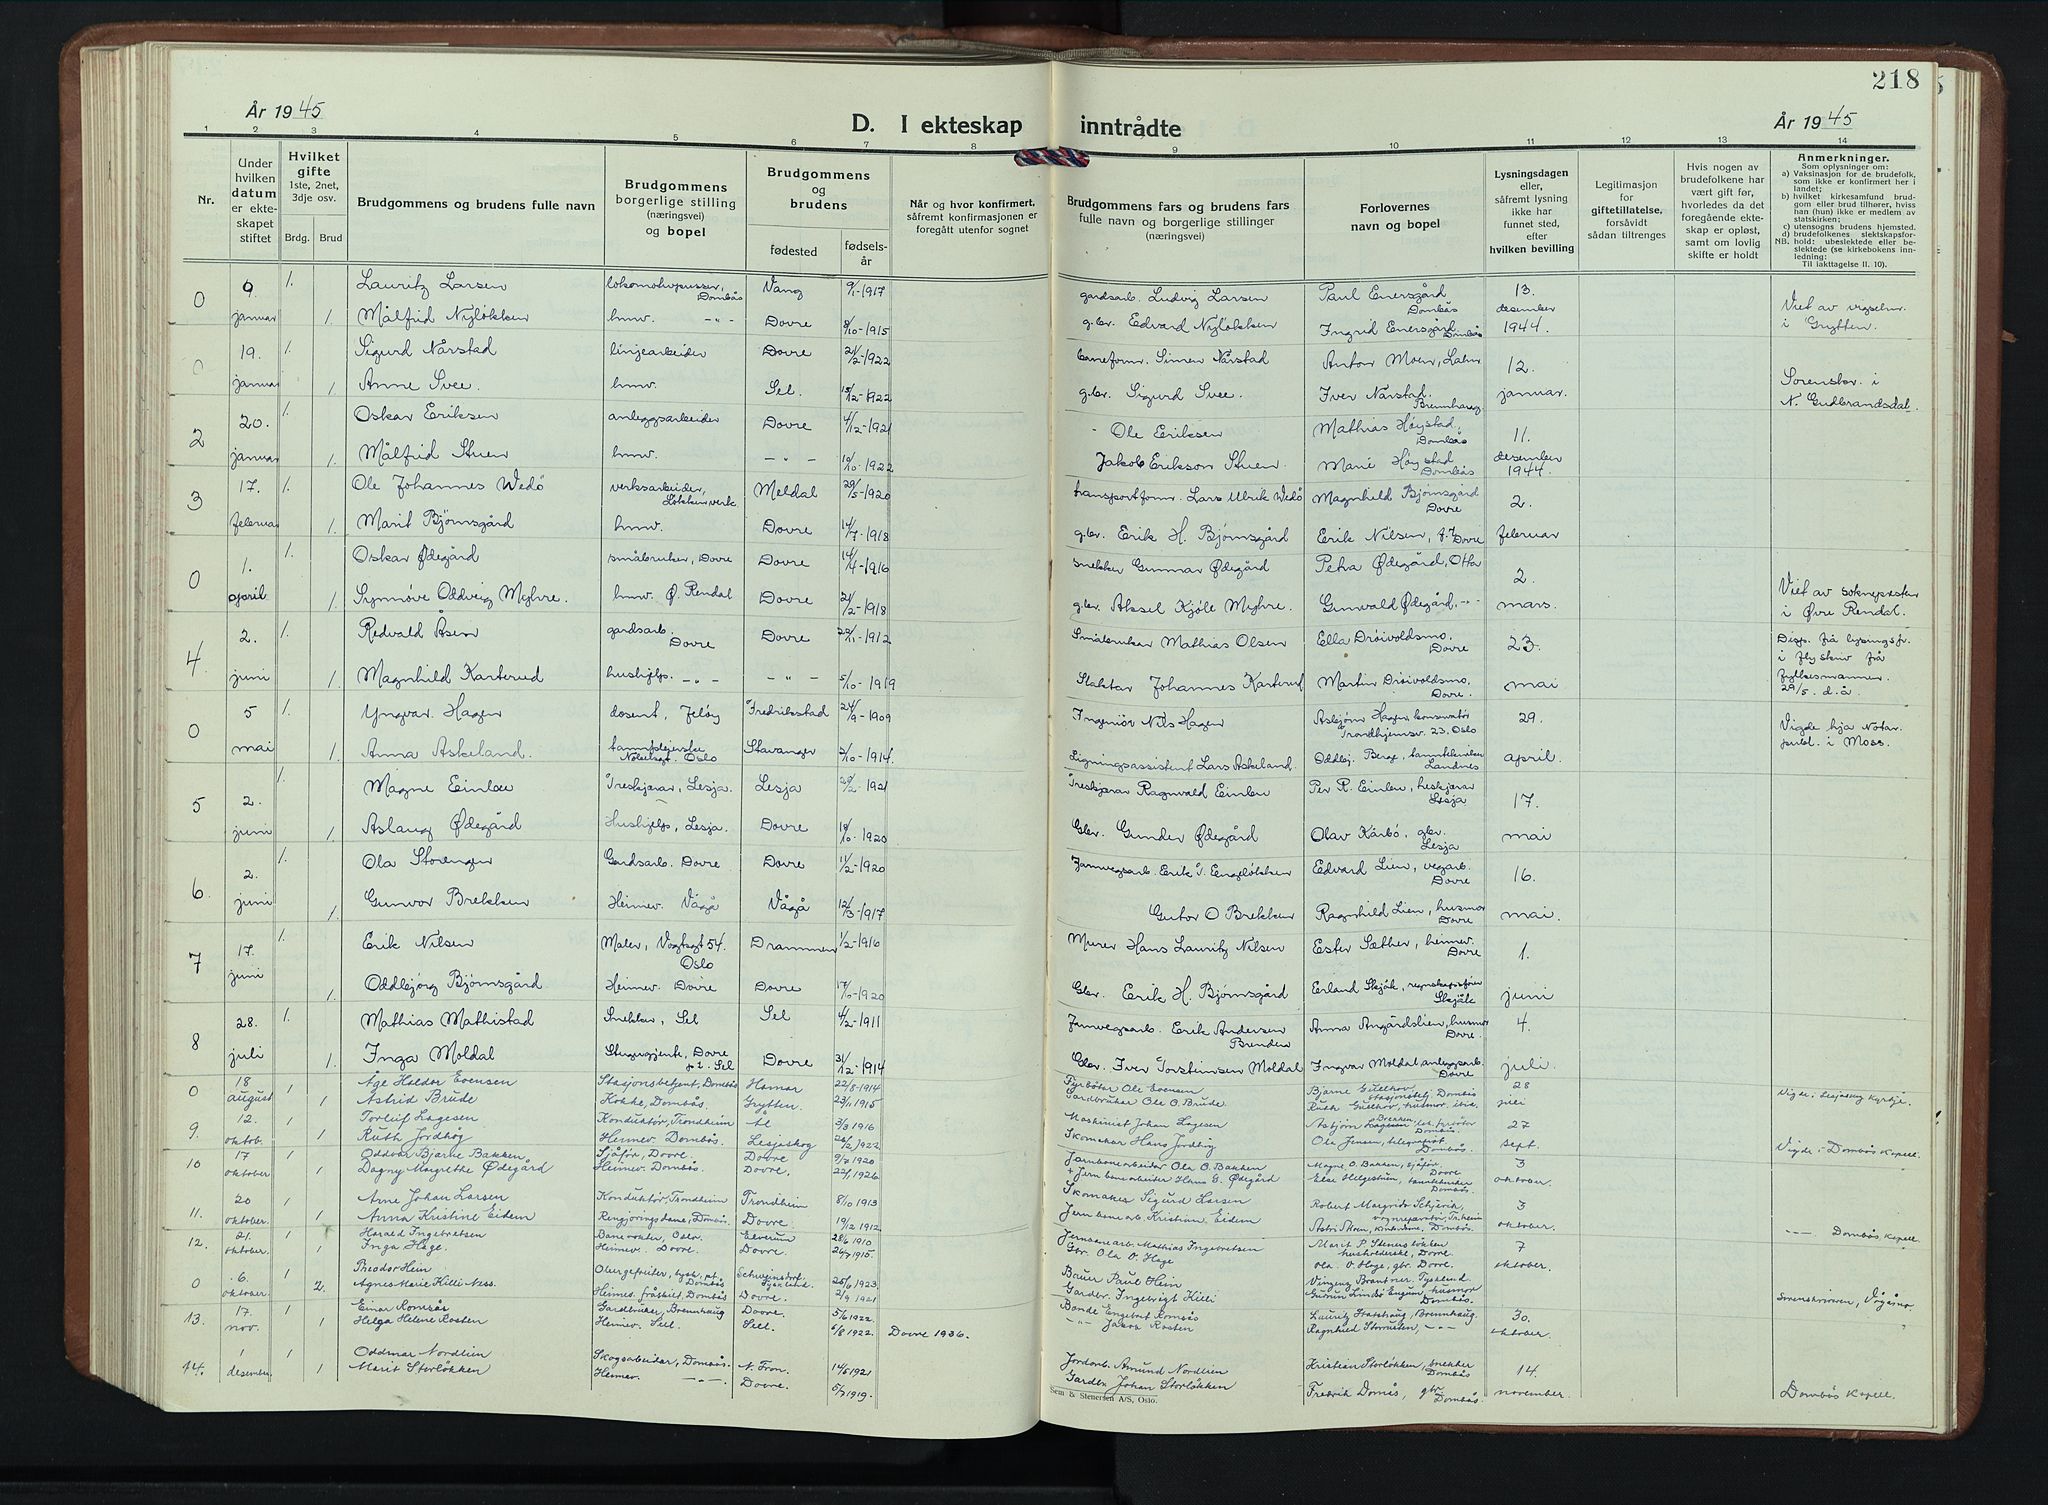 218
År 1945
D. I ekteskap inntrådte
År 1945
1 2 3 4 5 6 7 8 9 10 11 12 13 14
Nr.
Under hvilken datum er ekteskapet stiftet
Hvilket gifte 1ste, 2net, 3dje osv.
Brdg. Brud
Brudgommens og brudens fulle navn
Brudgommens borgerlige stilling (næringsvei) og bopel
Brudgommens og brudens
fødested
fødselsår
Når og hvor konfirmert, såfremt konfirmasjonen er foregått utenfor sognet
Brudgommens fars og brudens fars fulle navn og borgerlige stillinger (næringsvei)
Forlovernes navn og bopel
Lysningsdagen eller, såfremt lysning ikke har funnet sted, efter hvilken bevilling
Legitimasjon for giftetillatelse, forsåvidt sådan tiltrenges
Hvis nogen av brudefolkene har vært gift før, hvorledes da det foregående ekteskap er opløst, samt om lovlig skifte er holdt
Anmerkninger.
Som oplysninger om:
a) Vaksinasjon for de brudefolk, som ikke er konfirmert her i landet;
b) hvilket kirkesamfund brudgom eller brud tilhører, hviss han (hun) ikke er medlem av statskirken;
c) utensogns brudens hjemsted.
d) brudefolkenes slektskapsforhold: ubeslektede eller beslektede (se kirkebokens innledning:
NB. Til iakttagelse II. 10).
0 9. 1. Lauritz Larsen lokomotivpusser, Dombås Vang 9/1-1917 gardsarb. Ludvig Larsen Paul Enersgård Dombås 13. Viet av vigselm.
januar 1. Målfrid Nyløkken hmv. -"- Dovre 8/10-1915 g.br. Edvard Nyløkken Ingrid Enersgård Dombås desember 1944. i Grytten.
0 19. 1. Sigurd Nårstad linjearbeider Dovre 21/2-1922 baneform. Simen Nårstad Anton Moen, 12.
januar 1. Anne Svee. hmv. Sel. 15/12-1922 g.br. Sigurd Svee. Iver Nårstad, Brennhaug januar. Sorenskr. i N. Gudbrandsdal.
2 20. 1. Oskar Eriksen anleggsarbeider Dovre 4/12-1921 - Ole Eriksen Mathias Høystad, Dombås 11.
januar 1. Målfrid Stuen hmv. -"- 10/10-1922 Jakob Erikson Stuen Marie Høystad Dombås desember 1944.
3 17. 1. Ole Johannes Wedø verksarbeider, Løkken verk Meldal 29/5-1920 transportform. Lars Ulrik Wedø Magnhild Bjørnsgård Dovre 2.
februar 1. Marit Bjørnsgård hmv. Dovre 14/7-1918 g.br. Erik H. Bjørnsgård Erik Nilsen, Dovre februar
0 1. 1. Oskar Ødegård småbruker, Dovre Dovre 14/4-1916 snekker Gunnar Ødegård Petra Ødegård, Otta 2. Viet av sokneprester
april 1. Synnøve Oddveig Myhre. hmv. Ø. Rendal Dovre 21/2-1918 g.br. Aksel Kjøle Myhre. Gunvald Ødegård, -"- mars. i Øvre Rendal.
4 2. 1. Redvald Åsen gardsarb. Dovre Dovre 22/11-1912 Småbruker Mathias Olsen Ella Drøivoldsmo. Dovre 23. Disp. frå lysingsfr.
juni 1. Magnhild Karterud hushjelp. -"- -"- 5/10-1919 Johannes Karterud Martin Drøivoldsmo, Dovre. mai i flg skriv frå fylkesmannen 29/5. d.å.
0 5 1. Yngvar Hagen dosent, Jeløy Fredrikstad 24/9-1909 Ingeniør Nils Hagen Asbjørn Hagen, konservator Trondhjemsv. 23, Oslo 29. Vigde hja Notar.
mai 1. Anna Askeland. Oslo Stavanger 2/10-1914. Ligningsassistent Lars Askeland. Oddbj. Berge, tanntekniker april. publ. i Moss.
5 2. 1. Magne Einbu Treskjærar, Lesja. Lesja 20/2-1921 Treskjærar Ragnvald Einbu Per R. Einbu, treskjærar Lesja 17.
juni 1. Aslaug Ødegård Hushjelp, Lesja. Dovre 18/10-1920 Gbr. Gunder Ødegård Olav Kårbø, gbr. Lesja mai
6 2. 1. Ola Storengen Gardsarb. Dovre Dovre 11/2-1920 Jarnvegsarb. Erik T. Engeløkken Edvard Lien, vegarb. Dovre 16.
juni 1. Gunvor Brekken Heimev. Vågå Vågå 12/3-1917 Gutor O Brekken Ragnhild Lien, husmor Dovre mai.
7 17. 1. Erik Nilsen Maler, Vogtsgt 54. Oslo Drammen 1/2-1916 Murer Hans Lauritz Nilsen Ester Sæther, heimev. Dovre 1.
juni 1. Oddbjørg Bjørnsgård Heimev. Dovre Dovre 17/10-1920 Gbr. Erik H. Bjørnsgård Erland Skjåk, regnskapsfører Skjåk juni
8 28. 1. Mathias Mathistad Snekker, Sel Sel 4/2-1911 Jarnvegsarb. Erik Andersen Brenden Anna Angårdslien, husmor Dovre. 4.
juli 1. Inga Moldal Dovre p.t. Sel Dovre 31/12-1914 Gbr. Iver Torsteinsen Moldal Ingvar Moldal, anleggsarb. Dovre juli.
0 18 1 Åge Haldor Evensen Stasjonsbetjent, Dombås Hamar 22/8-1914 Fyrbøter Ole Evensen Bjarne Gullhov, Stasjonsbetj. Dombås 28
august 1 Astrid Brude Kokke, Dombås. Grytten. 23/11 1915 Gardbruker Ole O. Brude. Ruth Gullhov, husmor, ibid. juli Vigde: Lesjaskog kyrkje.
9. 12. 1 Torleif Lagesen Konduktør, Trondheim Ål 3/3 1916 Maskinist Johan Lagesen Asbjørn Brekken, fyrbøter Dombås. 27
oktob. 1 Ruth Jordhøg Heimev. Dombås. Lesjaskog 26/2 1922 Skomaker Hans Jordhøg Ola Jensen, telegrafist Dombås. sept.
10 17 1 Oddvar Bjarne Bakken Sjåfør, Dovre. Dovre 9/7 1920 Jernbanearbeider Ola O. Bakken Magne O. Bakken, sjåfør, Dovre 3 Vigde i Dombås kapell.
oktober 1 Dagny Margrethe Ødegård Heimev. Dombås. Dovre. 22/1 1926 Jernbanearbeiter Hans G. Ødegård Else Helgestun, Dombås. oktober.
11. 20 1 Arne Johan Larsen Konduktør, Trondheim Trondheim 8/10 1913 Skomaker Sigurd Larsen Robert Margido Schjervik, vognreparatør, Tr.heim 3
oktober. 1 Anna Kristine Eidem Rengjøringsdame, Dombås. Dovre 19/12 1912 Jernbanearb. Kristian Eidem Dombås. oktober.
12. 21. 1 Harald Ingebretsen Banevokter, Oslo. Elverum 28/6 1910 Jernbanearb. Mathias Ingebretsen Marit P. Stenersløkken husholderske, Dovre. 7 -"- Dombås kapell.
oktober 1 Inga Hage. Heimev. Dovre. Dovre. 24/7 1915. Gbr. Ola O. Hage Ola O. Hage, gbr. Dovre. oktober.
0 6. 1 Theodor Hein Obergefreiter, tysk, pt Dombås 25/6 1923 Bauer Paul Hein Vinzenz Brantner, Tyskland
oktober 2. Agnes Marie Killi Ness. Heimev. fråskilt, Dombås Dovre. 2/9 1921 Gardbr. Ingebrigt Killi husmor Dombås. Sorenskriveren, Vågåmo
13. 17. 1 Einar Romsås Gardbruker, Brennhaug Dovre. 5/6 1922 Bonde Engebret Romsås Lauritz Hatshaug, Brennhaug. 30.
nov. 1 Helga Helene Rosten Heimev. Sell. Sell. 6/8 1922. Dovre 1936. -"- Jakob Rosten Ragnhild Storrusten, -"- oktober.
14. 1 1 Oddmar Nordlien Skogsarbeider, Dombås. N. Fron. 14/5 1921 Jordarb. Amund Nordlien Kristian Storløkken, snekker Dombås 14.
desember. 1 Marit Storløkken Heimev. -"- Dovre. 5/7 1919. Gardbr. Johan Storløkken Fredrik Domås, gbr. Dombås. november. Dombås kapell.
Sem & Stenersen A/S, Oslo.